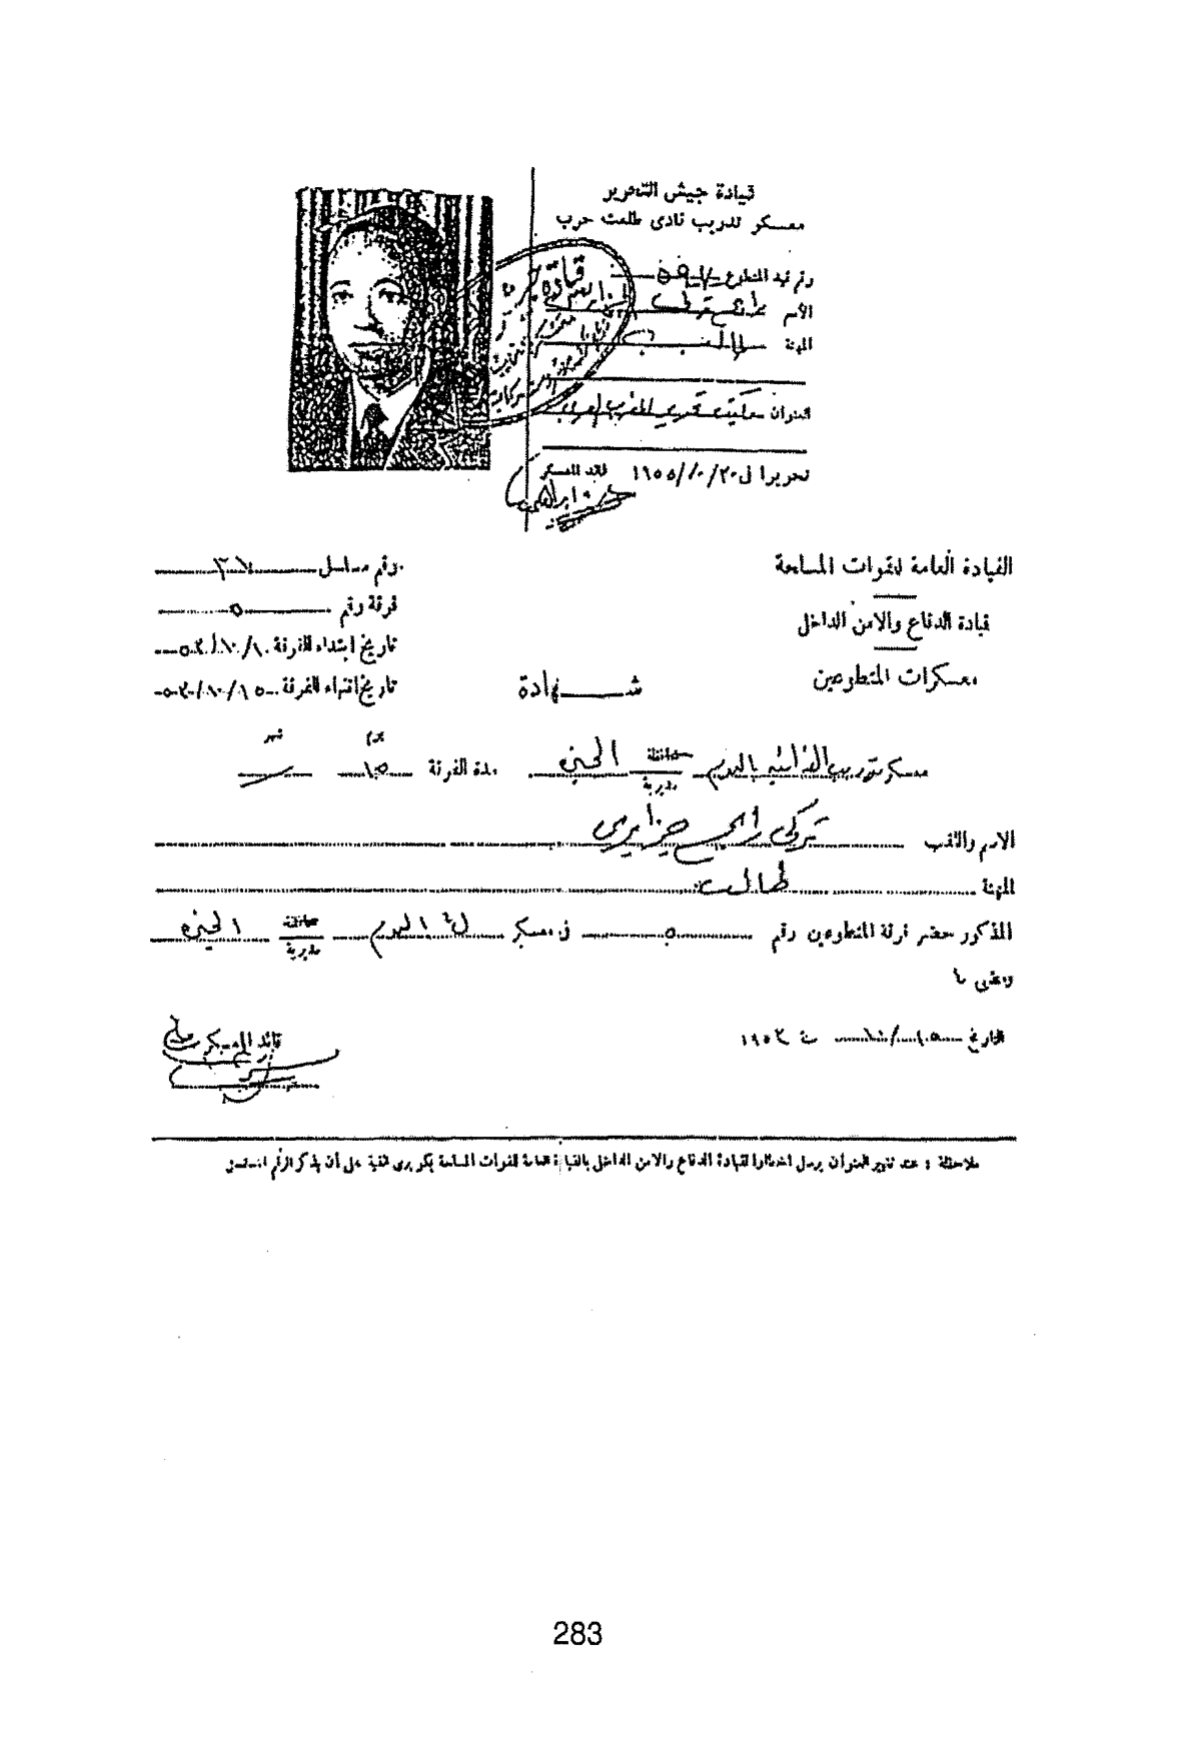 قيادة جيش التحرير
معسكر تدريب نادى طلعت حرب
رقم قيد المتطوع ٥٩٧
الاسم رابح تركى
المهنة طالب
العنوان مكتب تحرير المغرب العربى
تحريرا فى ٢٠/١٠/١٩٥٥ قائد المعسكر
القيادة العامة للقوات المسلحة
قيادة الدفاع والامن الداخلى
معسكرات المتطوعين
رقم مسلسل ٣٧
فرقة رقم ٥
تاريخ ابتداء الفرقة ١/١٠/٥٢
تاريخ انتهاء الفرقة ١٥/١٠/٥٢
شهادة
معسكر تدريب بالهرم محافظة مديرية الجيزه مدة الفرقة ١٥ يوم شهر
الاسم واللقب تركى رابح جزايرى
المهنة طالب
المذكور حضر فرقة المتطوعين رقم ٥ فى معسكر الهرم محافظة مديرية الجيزه
التاريخ ١٥/١٠ سنة ١٩٥٢
قائد المعسكر
ملاحظة : عند تغيير العنوان يرسل اخطارا لقيادة الدفاع والامن الداخلى بالقيادة العامة للقوات المسلحة بكوبرى القبة على أن يذكر الرقم المسلسل
283